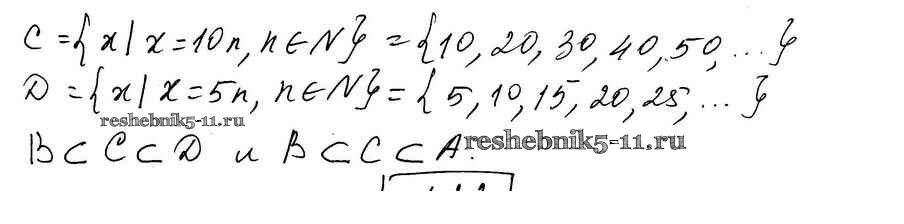 C = {x | x = 10n, n ∈ N} = {10, 20, 30, 40, 50, ...}
D = {x | x = 5n, n ∈ N} = {5, 10, 15, 20, 25, ...}
reshebnik5-11.ru
B ⊂ C ⊂ D и B ⊂ C ⊂ A.
reshebnik5-11.ru